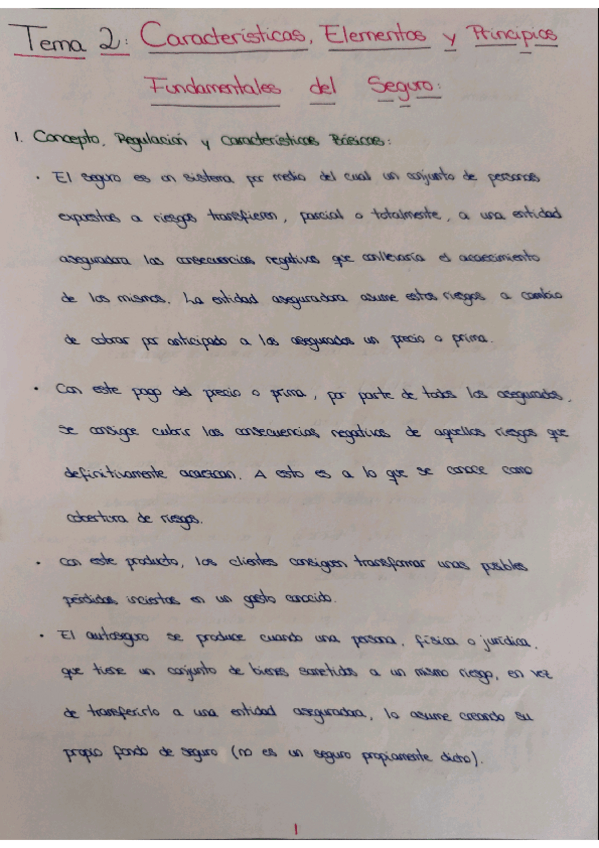 Tema 2: Características, Elementos y Principios
Fundamentales del Seguro:
1. Concepto, Regulación y Características Básicas:
· El seguro es un sistema por medio del cual un conjunto de personas
expuestas a riesgos transfieren, parcial o totalmente, a una entidad
aseguradora las consecuencias negativas que conllevaría el acaecimiento
de los mismos. La entidad aseguradora asume estos riesgos a cambio
de cobrar por anticipado a los asegurados un precio o prima.
· Con este pago del precio o prima, por parte de todos los asegurados,
se consigue cubrir las consecuencias negativas de aquellos riesgos que
definitivamente acaezcan. A esto es a lo que se conoce como
cobertura de riesgos.
· Con este producto, los clientes consiguen transformar unas posibles
pérdidas inciertas en un gasto conocido.
· El autoseguro se produce cuando una persona, física o jurídica,
que tiene un conjunto de bienes sometidos a un mismo riesgo, en vez
de transferirlo a una entidad aseguradora, lo asume creando su
propio fondo de seguro (no es un seguro propiamente dicho).
1